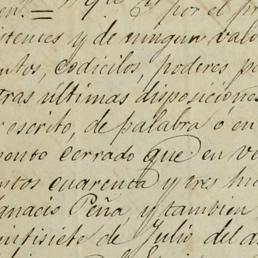 en. = Y que es por el pr
istentes y de ningun valo
entos, codicilos, poderes pa
tras últimas disposiciones
r escrito, de palabra ó en
mento cerrado que en ve
entos cuarenta y tres hi
gnacio Peña, y tambien
intisiete de Julio del a